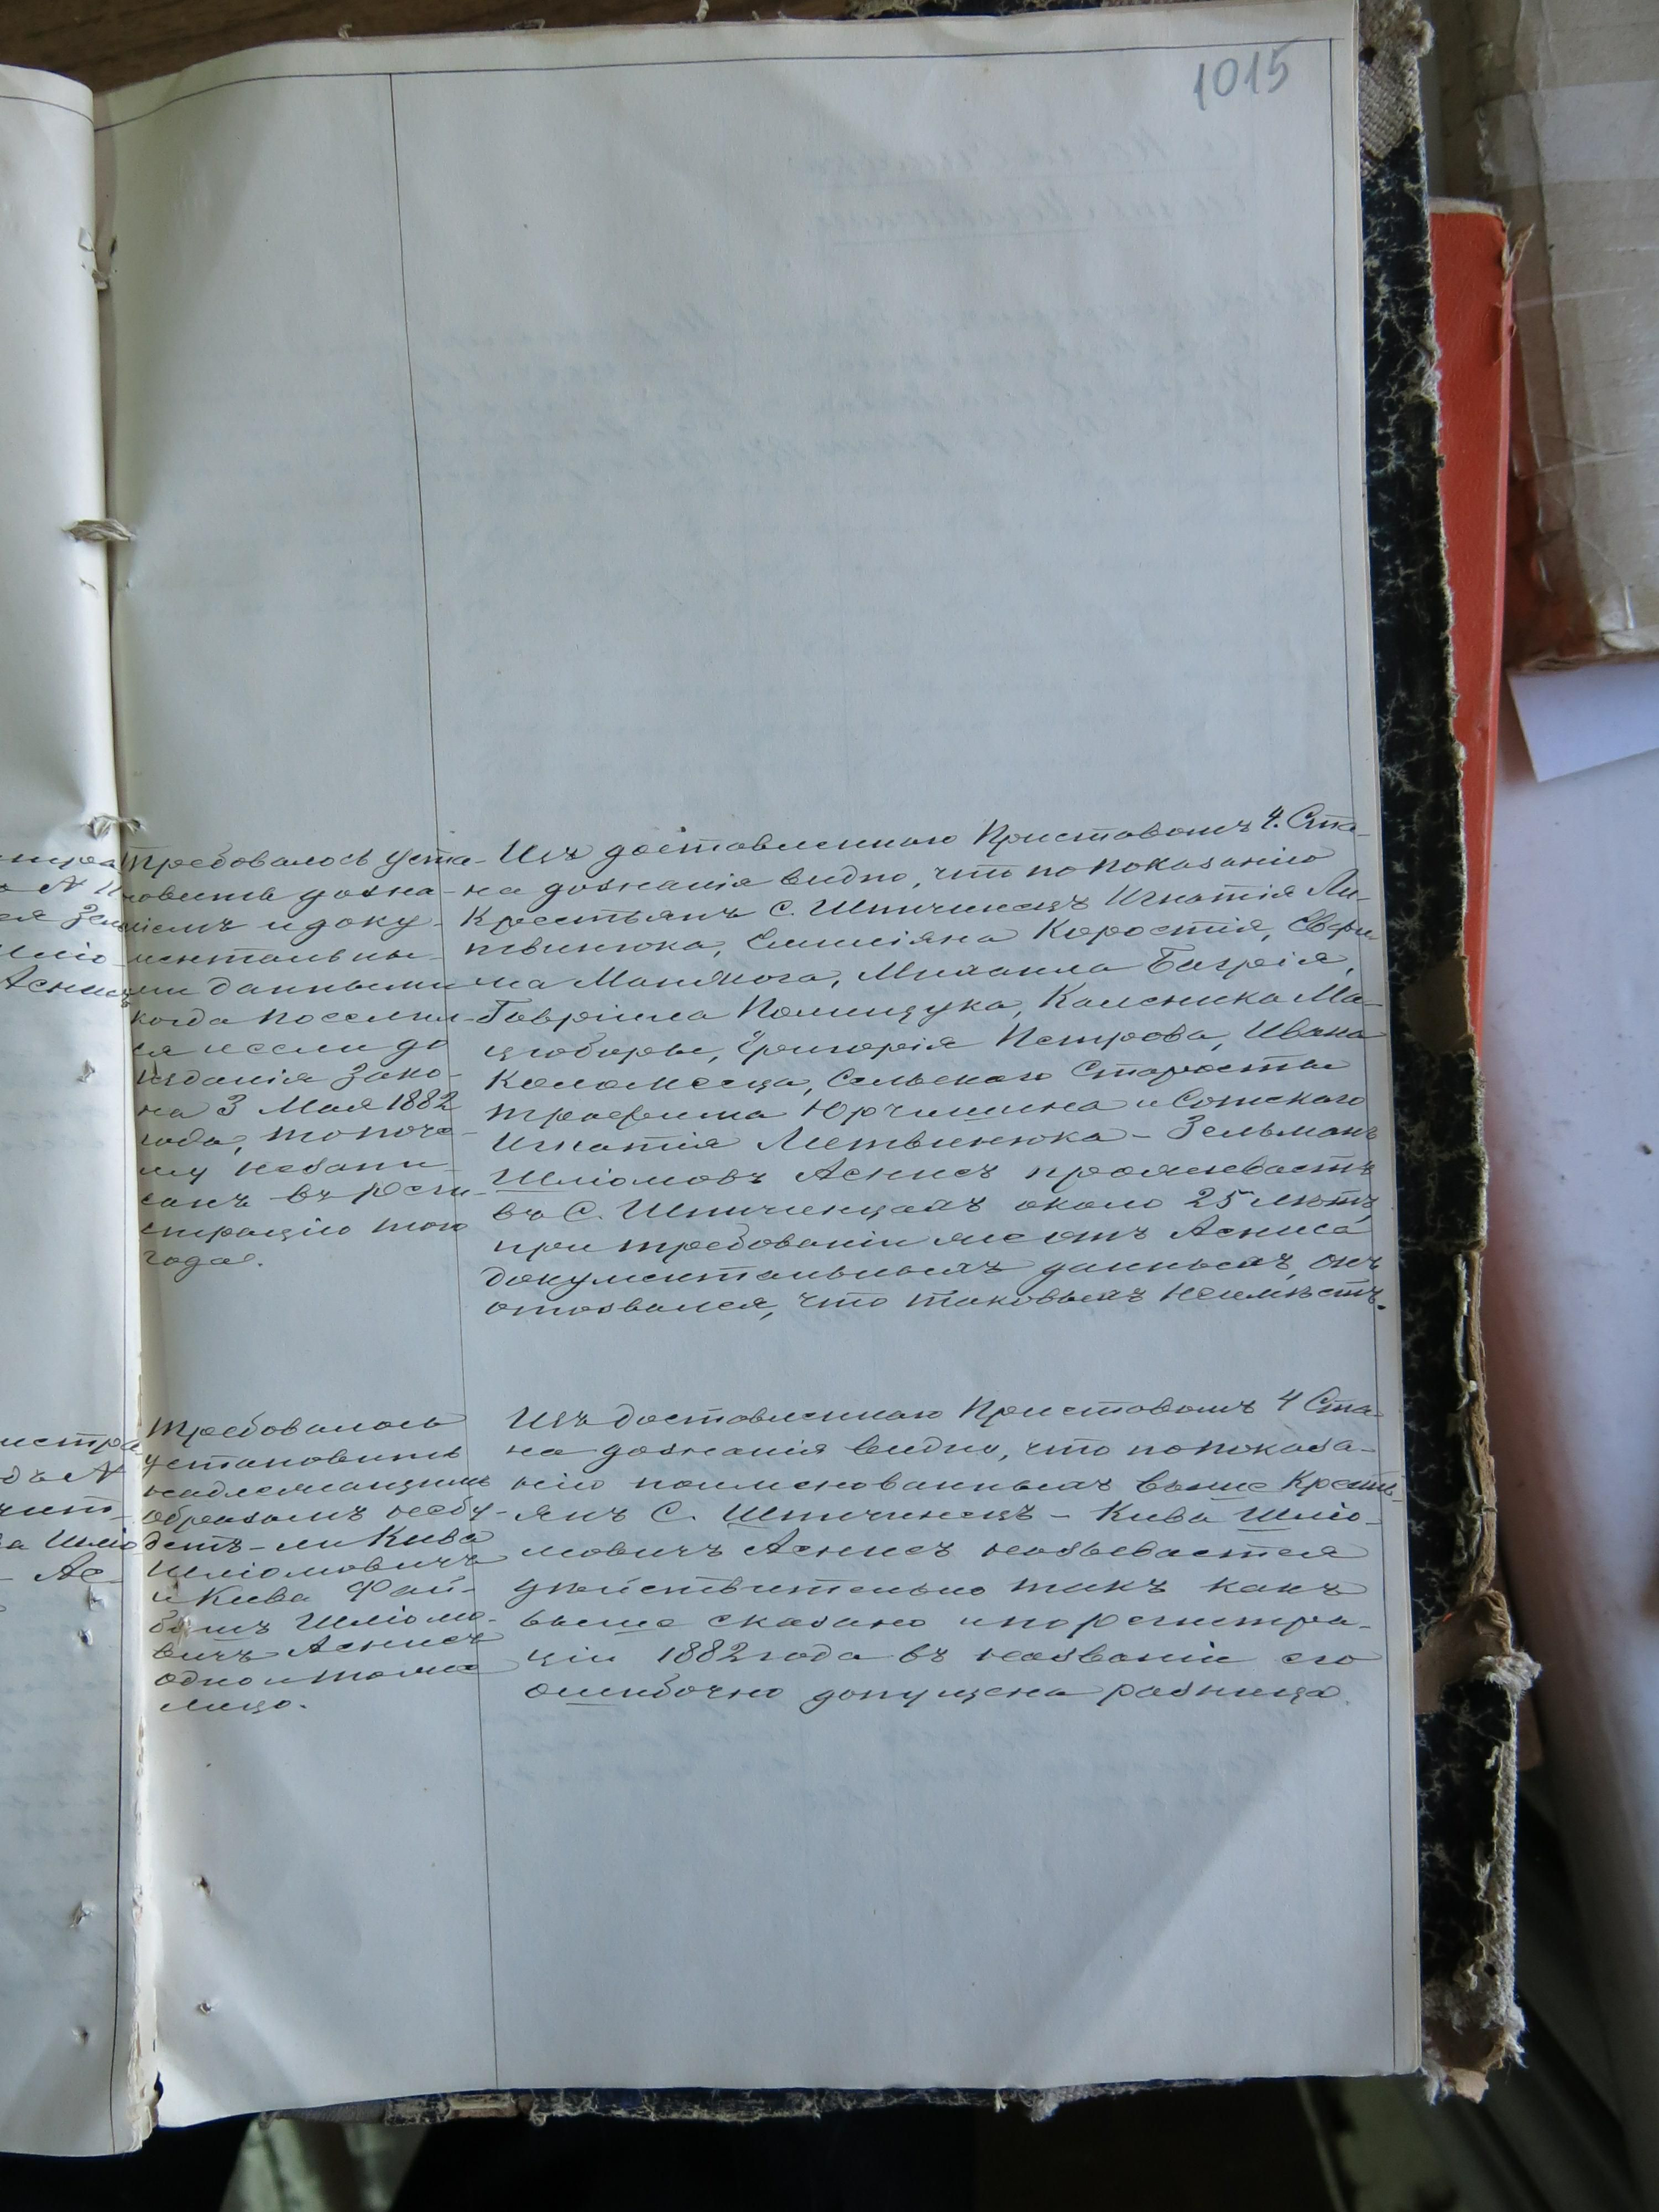 1015
Требовалось уста-
новить дозна-
ніемъ и доку-
ментальны-
ми данными
когда поселил-
ся и если до
изданія зако-
на 3 Мая 1882
года, то поче-
му незапи-
санъ въ реги-
страцію того
года.
Изъ доставленнаго Приставомъ 4. Ста-
на дознанія видно, что по показанію
Крестьянъ с. Шпичинецъ Игнатія Ли-
твинюка, Емиліяна Коростія,
на Михаила Багрія,
Гавріила Полищука, Каленика Ма-
цюборы, Григорія Петрова, Ивана
Коломееца, Сельскаго Старосты
Трофима Юрчишина и Сотскаго
Игнатія Литвинюка - Зельманъ
Шліомовъ Аснисъ проживаетъ
въ С. Шпиченцахъ около 25 лѣтъ,
при требованіи же отъ Асниса
документальныхъ данныхъ, онъ
отозвался, что таковыхъ неимѣетъ.
Требовалось
установить
надлежащимъ
образомъ небу-
детъ-ли Кива
Шліомовичъ
и Кива Фай-
бышъ Шліомо-
вичъ Аснисъ
одно и тоже
лицо.
Изъ доставленнаго Приставомъ 4 Ста-
на дознанія видно, что по показа-
нію поименованныхъ выше Крестъ-
янъ С. Шпичинецъ - Кива Шліо-
мовичъ Аснисъ называется
дѣйствительно такъ какъ
выше сказано и по регистра-
ціи 1882 года въ названіи его
ошибочно допущена разница.